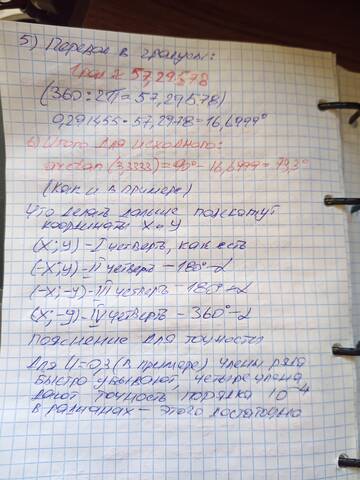 5) Перевод в градусы:
1 рад ≈ 57,29578
(360:2π = 57,29578)
0,291455 · 57,2978 = 16,6999°
6) Итого для исходного:
arctan (3,3333) = 90° - 16,6999 = 73,3°
(Как и в примере)
Что делать дальше покажут
координаты X и У
(X; У) - I четверть, как есть
(-X; У) - II четверть - 180° - α
(-X; -У) - III четверть - 180° - α
(X; -У) - IV четверть - 360° - α
Пояснение для точности
Для U = 0,3 (в примере) члены ряда
быстро убывают, четыре члена
дают точность порядка 10⁻⁴
в радианах - этого достаточно